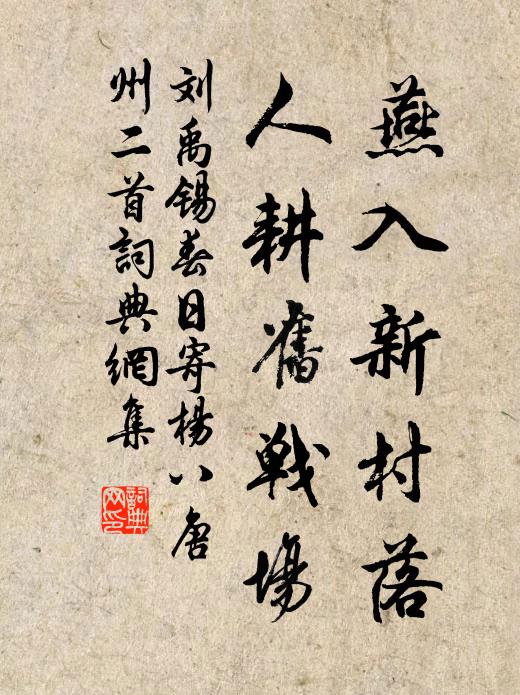 燕入新村落
人耕舊戰場
刘禹锡春日寄楊八唐
州二首詞典網集
詞典
网印